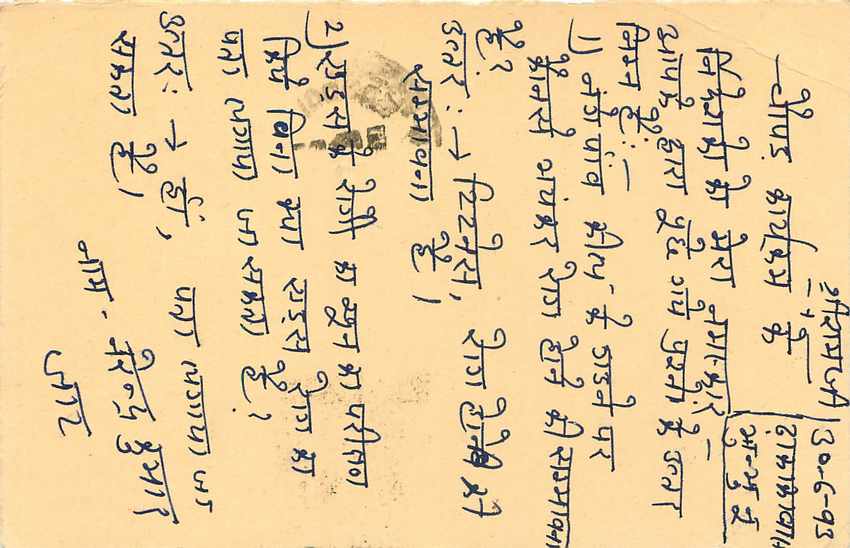 श्री रामजी 30-6-93
कार्यक्रम के
निर्देशको को मेरा नमस्कार -
आपके द्वारा पूछे गये प्रश्नो के उत्तर
निम्न है: -
1) नंगे पांव कील के गड़ने पर
कौनसे भयंकर रोग होने की सम्भावना
है?
उत्तर: → टिटनेस, रोग होने की
सम्भावना है।
2) एडस के रोगी के खून का परीक्षण
किये बिना क्या एडस रोग का
पता लगाया जा सकता है?
उत्तर: → हाँ, पता लगाया जा
सकता है।
नाम - नरेन्द्र कुमार
जाट